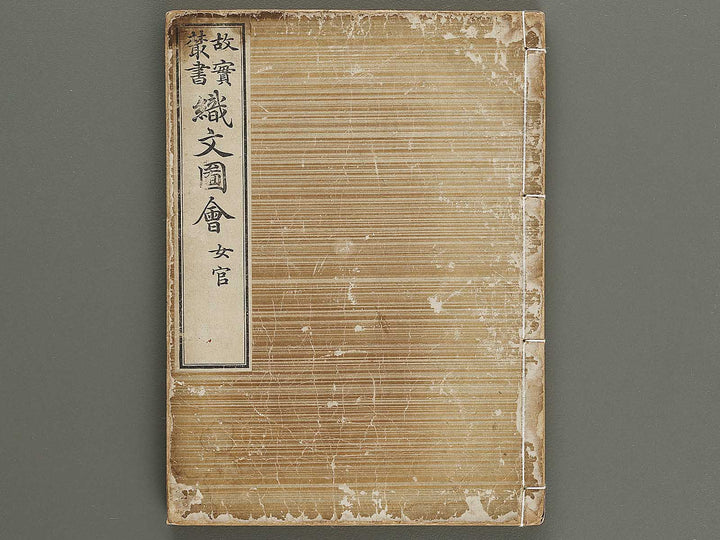 故實
叢書
織文圖會 女官